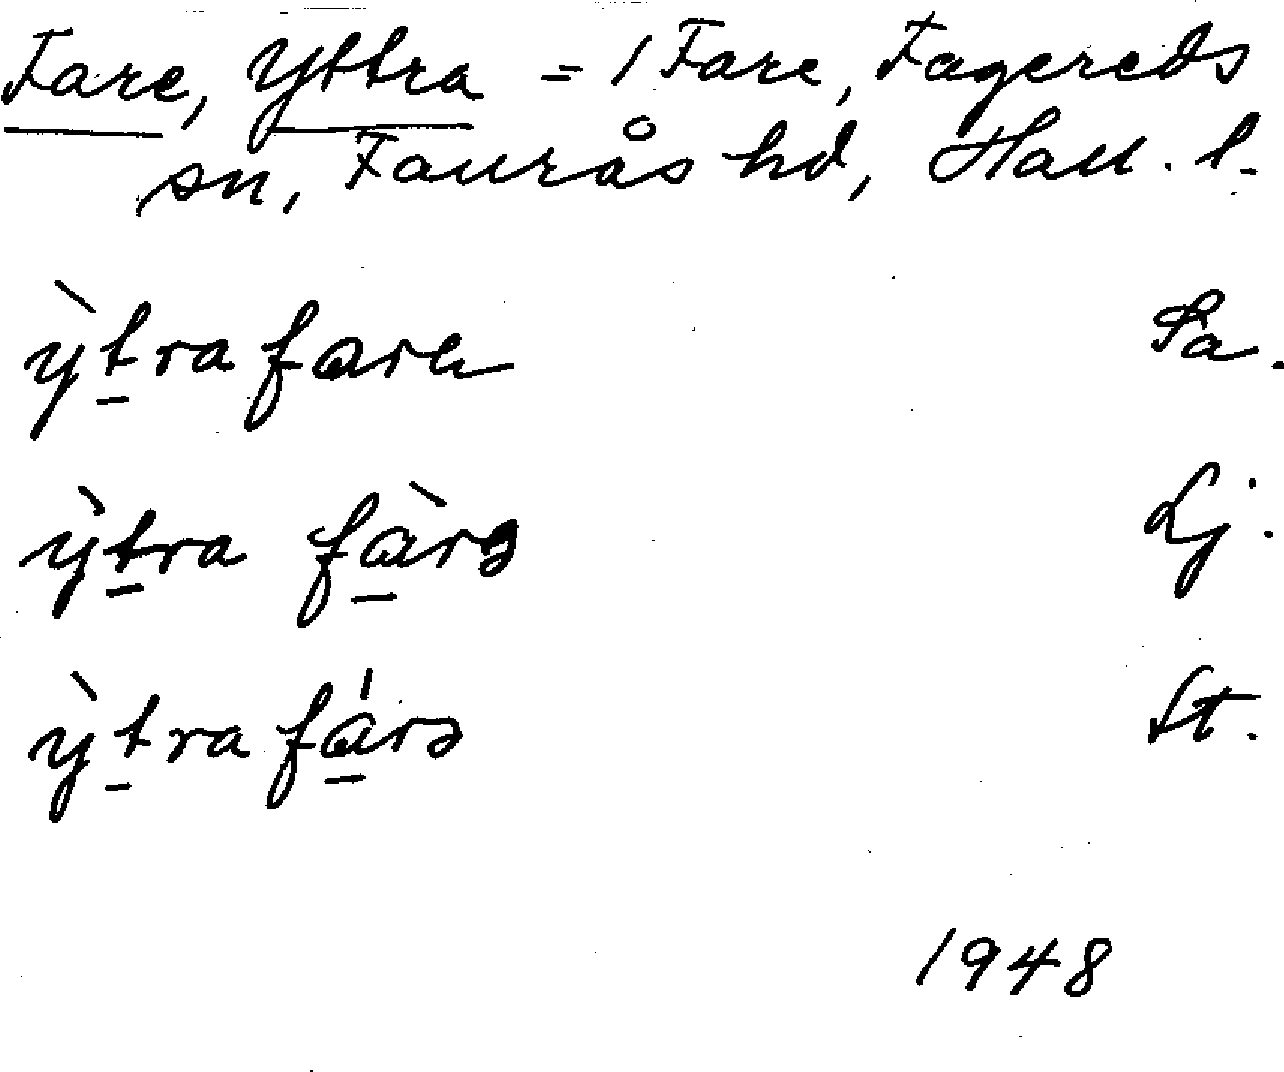 Fare, Yttra = 1 Fare, Fagereds
sn, Faurås hd, Hall. l.
ỳtra fare Sa.
ỳtra fàrə Lj.
ỳtra fárə St.
1948